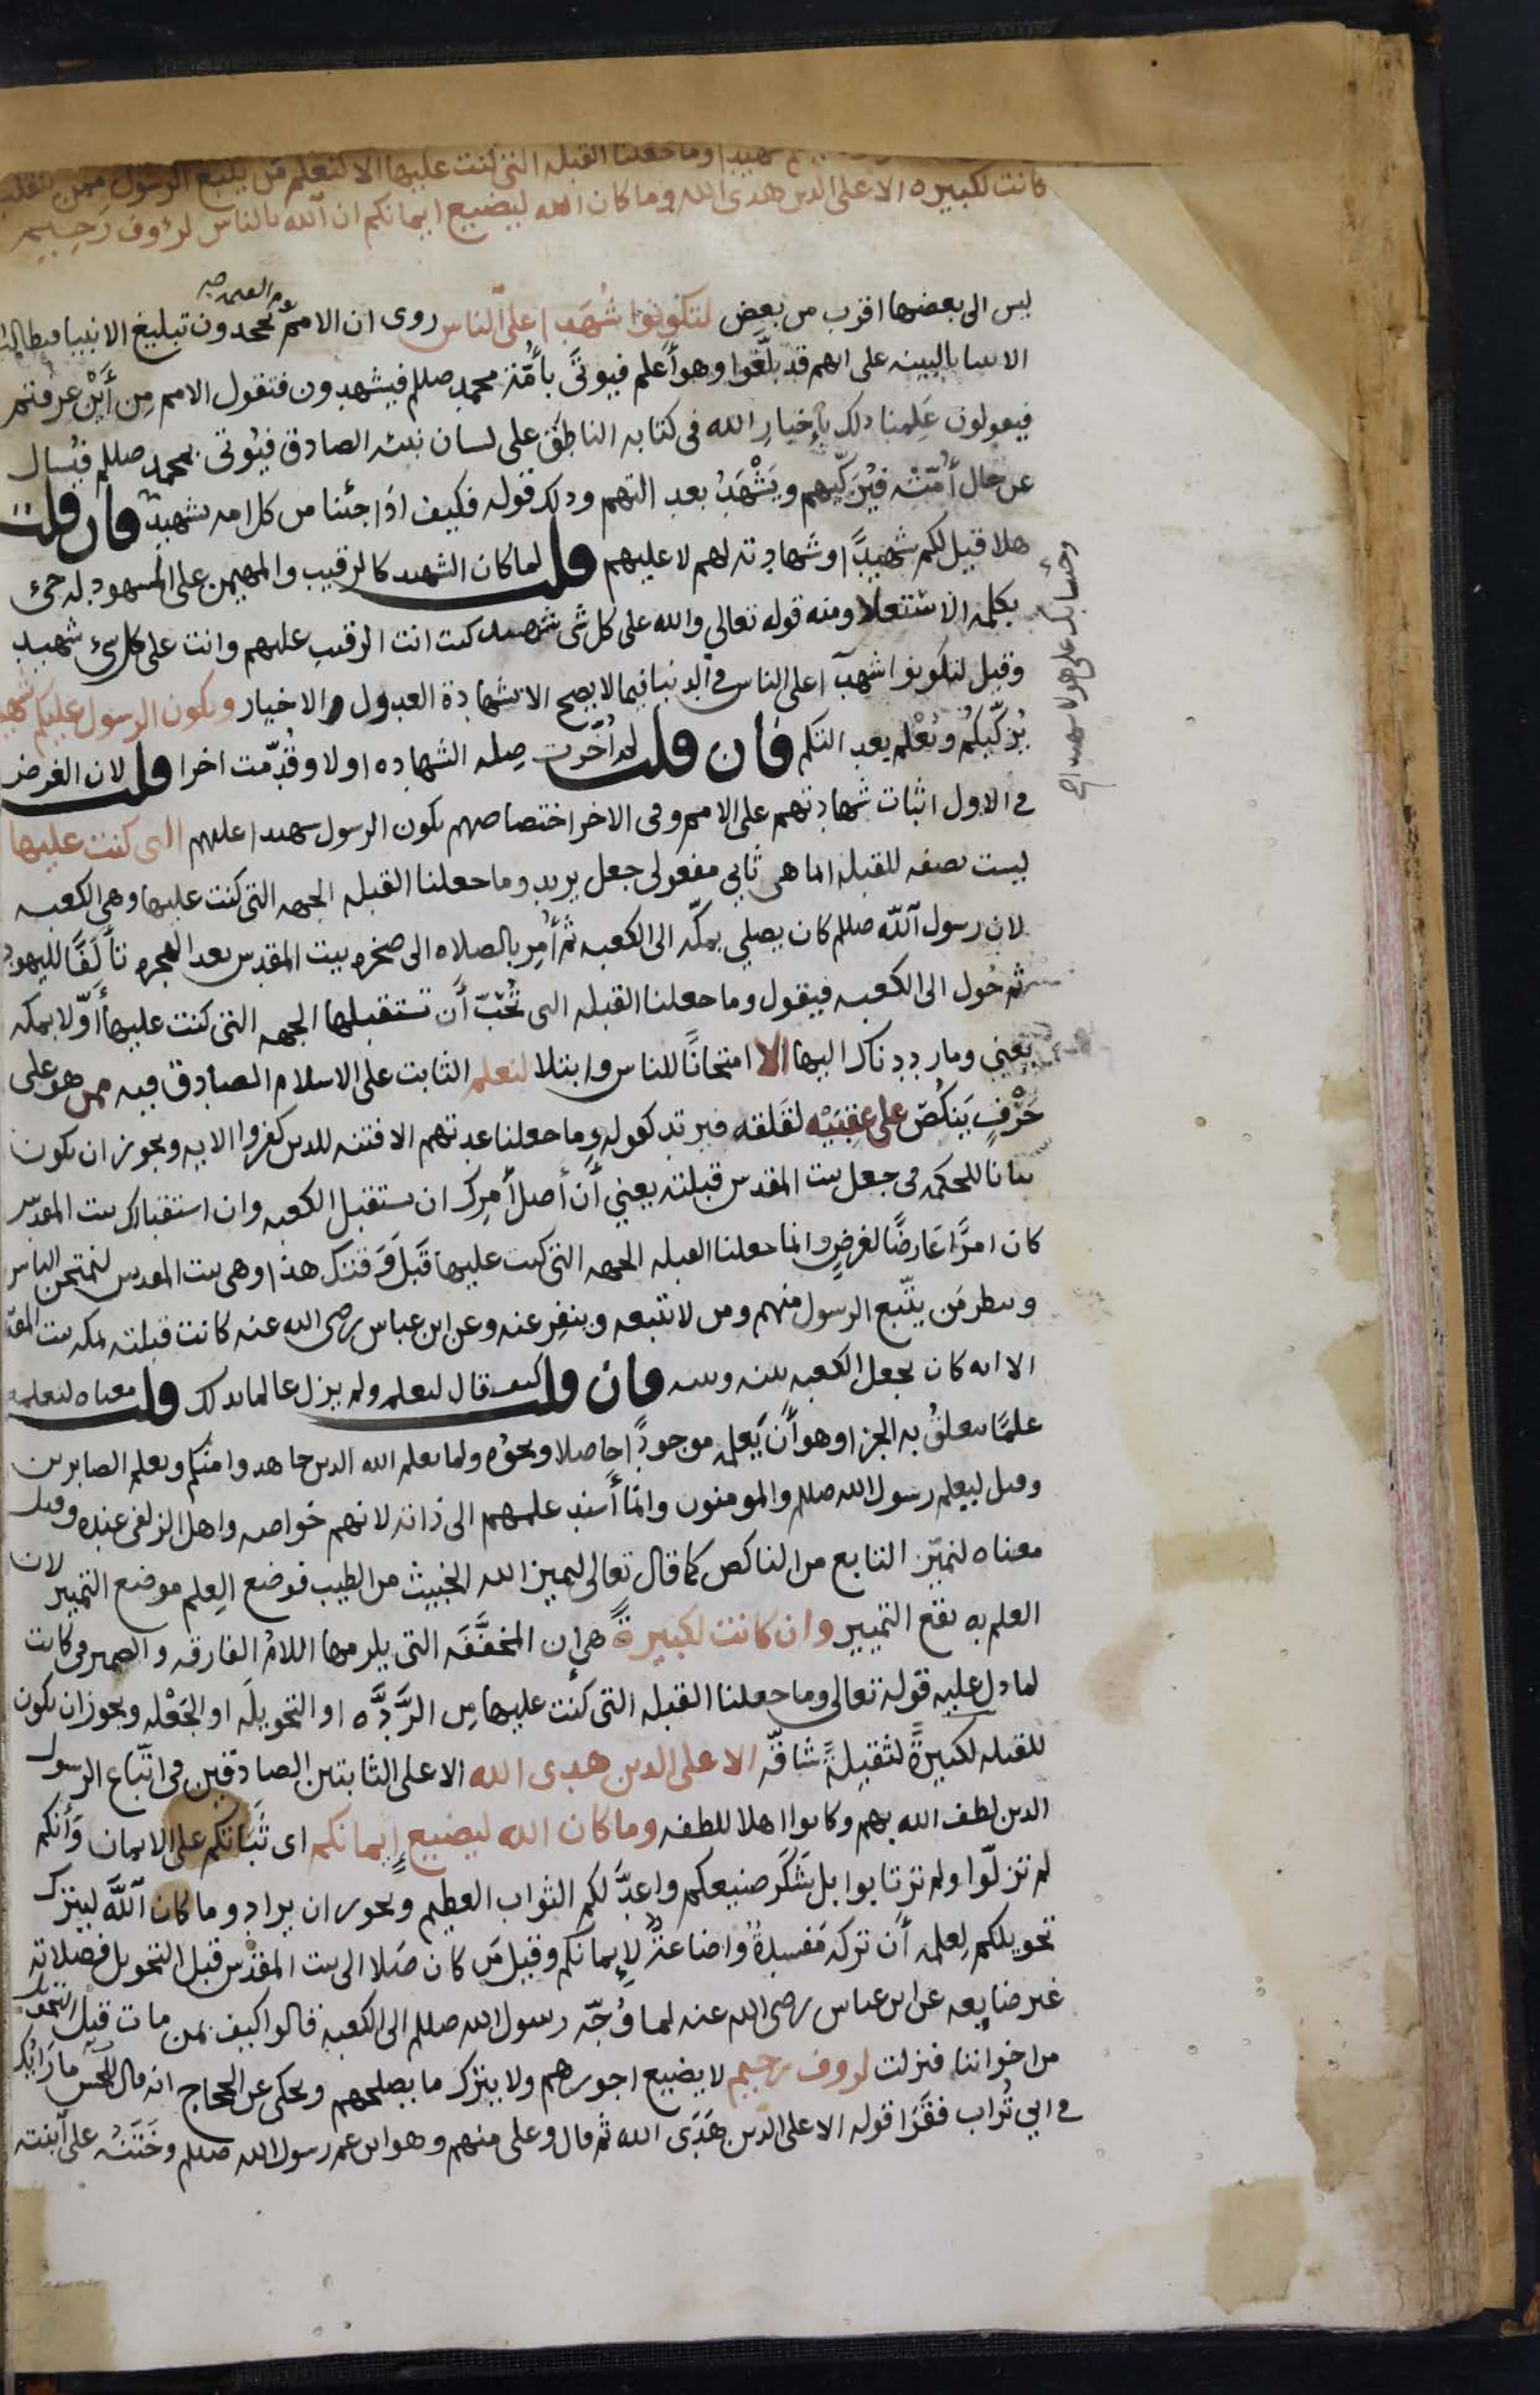 شهيدا وما جعلنا القبلة التي كنت عليها الا لنعلم من يتبع الرسول ممن ينقلب
كانت لكبيرة الا على الذين هدى الله وما كان الله ليضيع ايمانكم ان الله بالناس لرؤوف رَحِيم
ليس الى بعضها اقرب من بعض لتكونوا شُهَدا على الناس روى ان الامم يوم القيمه يجحدون تبليغ الانبيا فيطالب
الانبيا بالبينه على انهم قد بلّغوا وهو أعلم فيوتَى بأمّة محمد صللم فيشهدون فتقول الامم مِن أَيْن عرفتم
فيقولون عَلِمنا ذلك بإخبارِ الله في كتابه الناطق على لسان نبيه الصادق فيُوتى بمحمد صللم فيُسال
عن حال أُمّته فيُزكّيهم ويَشْهَدُ بعدالتهم وذلك قوله فكيف اذا جئنا من كل امه بشهيد فان قلت
هلا قيل لكم شهيدًا وشهادته لهم لا عليهم قلت لما كان الشهيد كالرقيب والمهيمن على المشهود له جئ
بكلمه الاستعلا ومنه قوله تعالى والله على كل شى شهيد كنت انت الرقيب عليهم وانت على كل شئ شهيد
وقيل لتكونوا شهدآ على الناس في الدنيا فيما لا يصح الا بشهادة العدول والاخيار ويكون الرسول عليكم شهيدا
يُزكّيكم ويُعْلم بعدالتكم فان قلت لم أُخّرت صِله الشهاده اولا وقُدّمت اخرا قلت لان الغرض
في الاول اثبات شهادتهم على الامم وفي الاخر اختصاصهم بكون الرسول شهيدا عليهم التي كنت عليها
ليست بصفه للقبله انما هى ثاني مفعولى جعل يريد وما جعلنا القبله الجهه التي كنت عليها وهي الكعبه
لان رسول الله صللم كان يصلي بمكّه الى الكعبه ثم أُمِر بالصلاه الى صخره بيت المقدس بعد الهجره تألّفًا لليهود
ثم حُول الى الكعبه فيقول وما جعلنا القبله التي تُحبّ أن تستقبلها الجهه التي كنت عليها أوّلا بمكه
يعني وما رددناك اليها الا امتحانًا للناس وابتلا لنعلم الثابت على الاسلام الصادق فيه ممن هو على
حَرْفٍ يَنكُصُ على عقِبَيْه لقَلَقه فيرتد كقوله وما جعلنا عدتهم الا فتنه للذين كفروا الايه ويجوز ان يكون
بيانا للحكمه في جعل بيت المقدس قبلته يعني أنّ أصل أمرك ان تستقبل الكعبه وان استقبالك بيت المقدس
كان امرًا عارضًا لغرضٍ وانما جعلنا القبله الجهه التي كنت عليها قبل وَقتك هذا وهى بيت المقدس لنمتحن الناس
وننظر مَن يتّبع الرسول منهم ومن لا يتبعه وينفِر عنه وعن ابن عباس رضى الله عنه كانت قبلته بمكه بيت المقد
الا انه كان يجعل الكعبه بينه وبينه فان قلت كيف قال لنعلم ولم يزل عالما بذلك قلت معناه لنعلمه
علمًا يتعلقُ به الجزا وهو أن يَعلمه موجودًا حاصلا ونحوُه ولما يعلم الله الذين جاهدوا منكم ويعلم الصابرين
وقيل ليعلم رسول الله صللم والمومنون وانما أسند علمهم الى ذاته لانهم خواصه واهل الزلفى عنده وقيل
معناه لنميّز التابع من الناكص كما قال تعالى ليميز الله الخبيث من الطيب فوضع العِلم موضع التمييز لان
العلم به يقع التمييز وان كانت لكبيرةً هى إن المخفَّفَه التي يلزمها اللامُ الفارقه والضمير في كانت
لما دل عليه قوله تعالى وما جعلنا القبله التي كنت عليها مِن الرَّدَّه او التحويلَه او الجَعْله ويجوز ان يكون
للقبله لكبيرةً لثقيلةً شاقّه الا على الذين هدى الله الا على الثابتين الصادقين في اتّباع الرسول
الذين لطف الله بهم وكانوا اهلا للطفه وما كان الله ليضيع إيمانكم اى ثَبَاتكم على الايمان وأنكم
لم تزلّوا ولم ترتابوا بل شكَر صنيعكم واعدَّ لكم الثواب العظيم ويجوز ان يراد وما كان اللهُ ليترك
تحويلكم لِعلمه أنّ تركه مَفسدةٌ واضاعةٌ لإيمانكم وقيل مَن كان صَلا الى بيت المقدّس قبل التحويل فصلاته
غير ضايعه عن ابن عباس رضى الله عنه لما وُجّه رسول الله صللم الى الكعبة قالوا كيف بمن مات قبل التحويل
من اخواننا فنزلت لروف رحيم لا يضيع اجورهم ولا يترك ما يصلحهم ويحكى عن الحجاج انه قال للحسن ما رَايُك
في ابي تُراب فقرَا قوله الا على الذين هَدَى الله ثم قال وعلى منهم وهو ابن عم رسول الله صللم وخَتَنُه على ابنته
وجئنا بك على هولا شهيدا